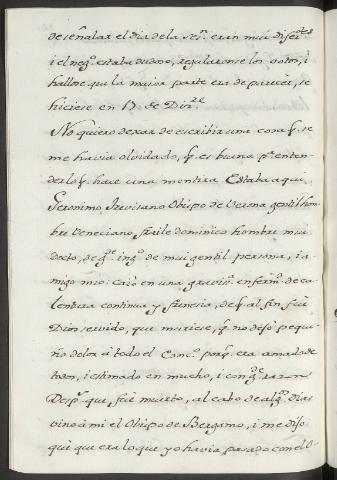 de señalar el dia de la Ses.ⁿ eran mui difer.tes
i el neg.º estaba dudoso, regularonse los votos, i
hallose que la maior parte era de parecer, se
hiciese en 17 de Dic.re
No quiero dexar de escribir una cosa q. se
me havia olvidado, q. es buena p.ª enten-
der lo q. hace una mentira. Estaba aqui
Geronimo Trevisano Obispo de Verona gentil hom
bre Veneciano, fraile dominico hombre mui
docto, de g.º ing.º de mui gentil persona, i a-
migo mio: caió en una gravis.ª enferm.d de ca-
lentura continua y frenesia, de q. al fin fue
Dios servido, que muriese, q. no dejó peque-
ño dolor a todo el Conc.º porq. era amado de
todos, i estimado en mucho, i con g.de razon
Desp.s que fue muerto, al cabo de alg.s dias
vino á mi el Obispo de Bergamo, i me dijo
que que era lo que yo havia pasado con el O-